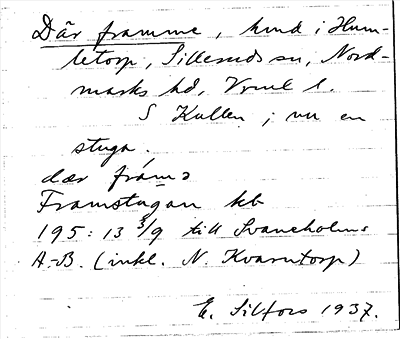 Där framme, hmd i Hum-
letorp, Silleruds sn, Nord-
marks hd, Vrml l.
S Kullen; nu en
stuga.
dær frám̠ə
Framstugan kb
195: 13 3/9 till Svaneholms
A.-B. (inkl. N. Kvarntorp)
E. Silfors 1937.